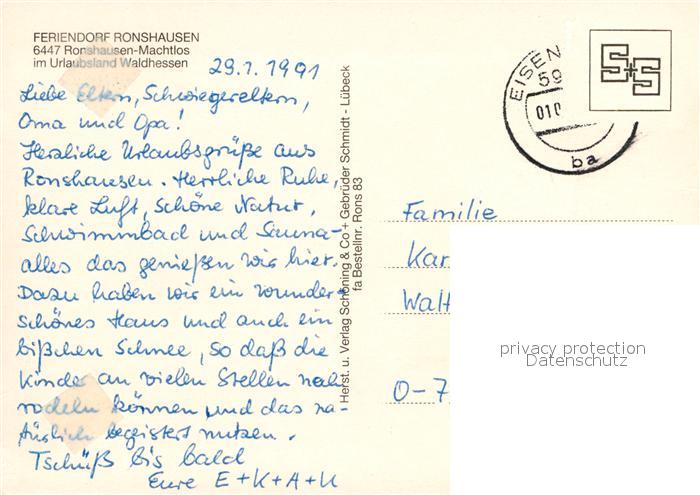 FERIENDORF RONSHAUSEN
6447 Ronshausen-Machtlos
im Urlaubsland Waldhessen
29.1.1991
Liebe Eltern, Schwiegereltern,
Oma und Opa!
Herzliche Urlaubsgrüße aus
Ronshausen. Herrliche Ruhe,
klare Luft, schöne Natur,
Schwimmbad und Sauna-
alles das genießen wir hier.
Dazu haben wir ein wunder-
schönes Haus und auch ein
bißchen Schnee, so daß die
Kinder an vielen Stellen noch
rodeln können und das na-
türlich begeistert nutzen.
Tschüß bis bald
Eure E+K+A+U
Herst. u. Verlag Schöning & Co + Gebrüder Schmidt - Lübeck
fa Bestellnr. Rons 83
EISEN
59
010
ba
S+S
Familie
Kar
Walt
O-7
privacy protection
Datenschutz